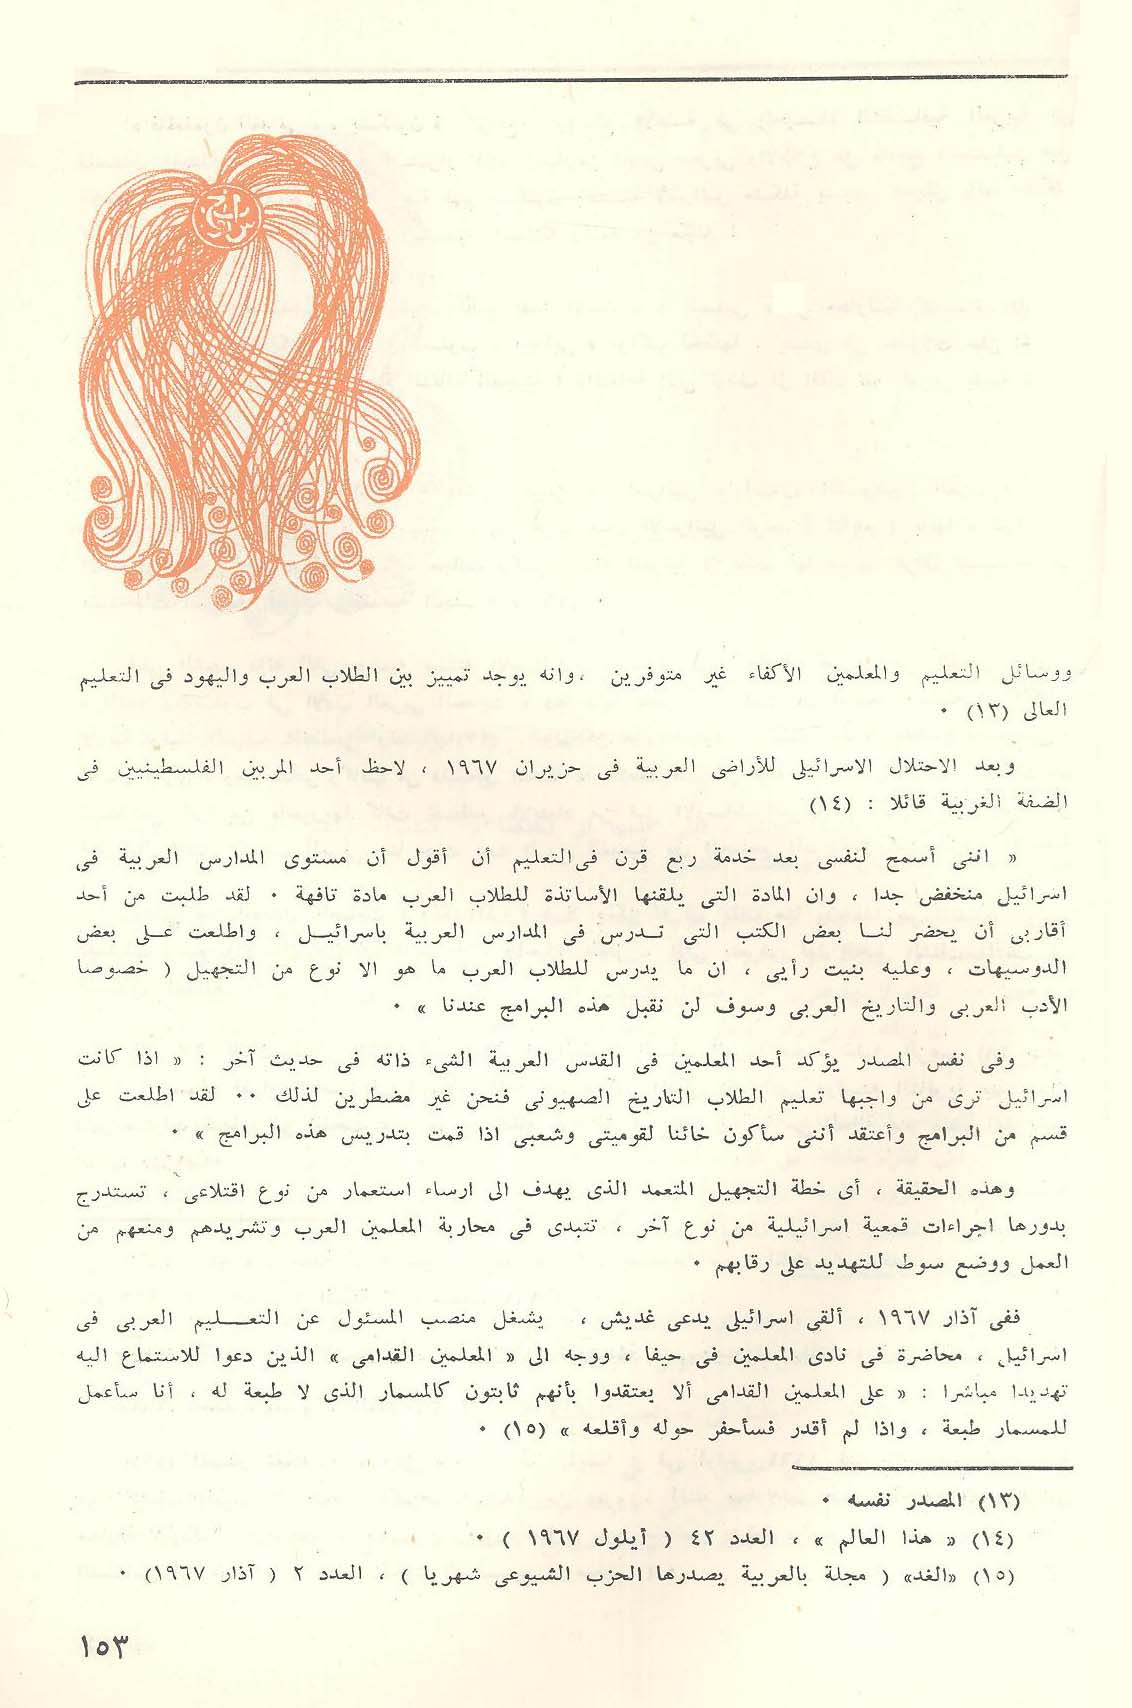 ووسائل التعليم والمعلمين الأكفاء غير متوفرين ، وانه يوجد تمييز بين الطلاب العرب واليهود فى التعليم
العالى (١٣) ٠
وبعد الاحتلال الاسرائيلى للأراضى العربية فى حزيران ١٩٦٧ ، لاحظ أحد المربين الفلسطينيين فى
الضفة الغربية قائلا : (١٤)
« اننى أسمح لنفسى بعد خدمة ربع قرن فى التعليم أن أقول أن مستوى المدارس العربية فى
اسرائيل منخفض جدا ، وان المادة التى يلقنها الأساتذة للطلاب العرب مادة تافهة ٠ لقد طلبت من أحد
أقاربى أن يحضر لنا بعض الكتب التى تدرس فى المدارس العربية باسرائيل ، واطلعت على بعض
الدوسيهات ، وعليه بنيت رأيى ، ان ما يدرس للطلاب العرب ما هو الا نوع من التجهيل ( خصوصا
الأدب العربى والتاريخ العربى وسوف لن نقبل هذه البرامج عندنا » ٠
وفى نفس المصدر يؤكد أحد المعلمين فى القدس العربية الشىء ذاته فى حديث آخر : « اذا كانت
اسرائيل ترى من واجبها تعليم الطلاب التاريخ الصهيونى فنحن غير مضطرين لذلك ٠٠ لقد اطلعت على
قسم من البرامج وأعتقد أننى سأكون خائنا لقوميتى وشعبى اذا قمت بتدريس هذه البرامج » ٠
وهذه الحقيقة ، أى خطة التجهيل المتعمد الذى يهدف الى ارساء استعمار من نوع اقتلاعى ، تستدرج
بدورها اجراءات قمعية اسرائيلية من نوع آخر ، تتبدى فى محاربة المعلمين العرب وتشريدهم ومنعهم من
العمل ووضع سوط للتهديد على رقابهم ٠
ففى آذار ١٩٦٧ ، ألقى اسرائيلى يدعى غديش ، يشغل منصب المسئول عن التعليم العربى فى
اسرائيل ، محاضرة فى نادى المعلمين فى حيفا ، ووجه الى « المعلمين القدامى » الذين دعوا للاستماع اليه
تهديدا مباشرا : « على المعلمين القدامى ألا يعتقدوا بأنهم ثابتون كالمسمار الذى لا طبعة له ، أنا سأعمل
للمسمار طبعة ، واذا لم أقدر فسأحفر حوله وأقلعه » (١٥) ٠
(١٣) المصدر نفسه ٠
(١٤) « هذا العالم » ، العدد ٤٢ ( أيلول ١٩٦٧ ) ٠
(١٥) «الغد» ( مجلة بالعربية يصدرها الحزب الشيوعى شهريا ) ، العدد ٢ ( آذار ١٩٦٧) ٠
١٥٣